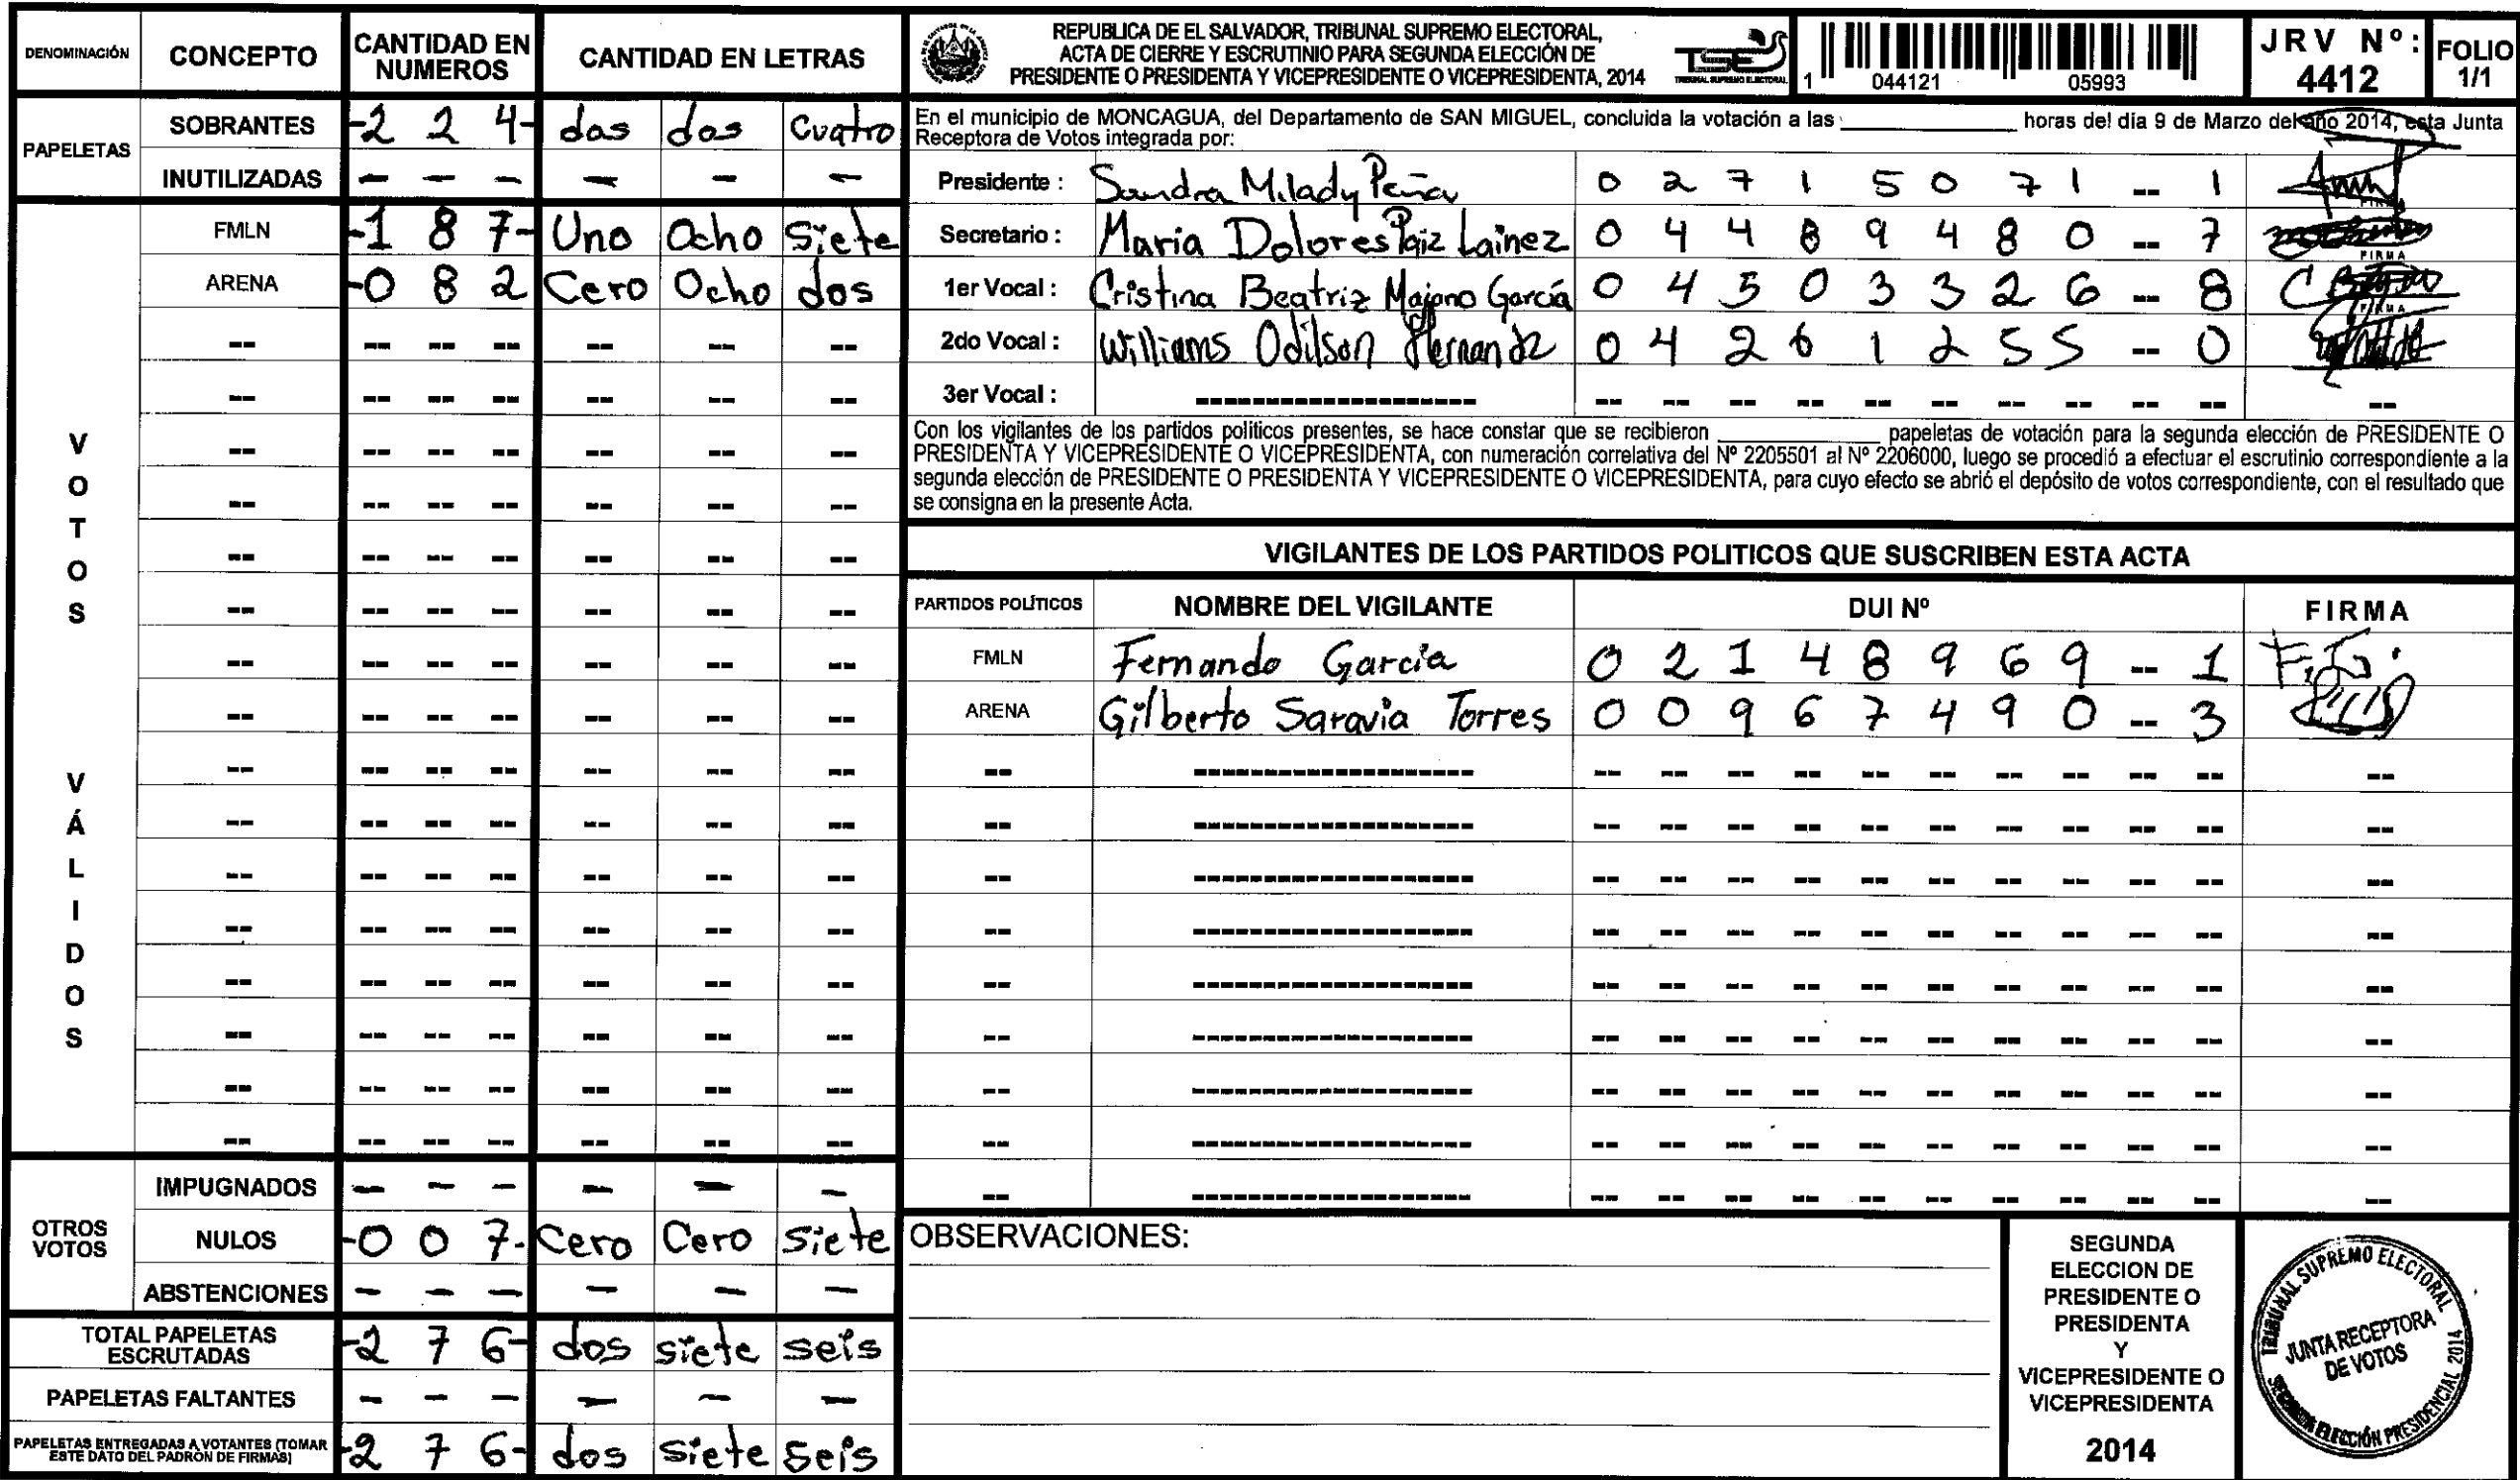 DENOMINACIÓN CONCEPTO CANTIDAD EN NUMEROS CANTIDAD EN LETRAS
PAPELETAS
SOBRANTES -2 2 4- dos dos Cuatro
INUTILIZADAS - - - - - -
VOTOS VÁLIDOS
FMLN -1 8 7- Uno Ocho Siete
ARENA -0 8 2 Cero Ocho dos
OTROS VOTOS
IMPUGNADOS - - - - - -
NULOS -0 0 7- Cero Cero Siete
ABSTENCIONES - - - - - -
TOTAL PAPELETAS ESCRUTADAS -2 7 6- dos siete seis
PAPELETAS FALTANTES - - - - - -
PAPELETAS ENTREGADAS A VOTANTES (TOMAR ESTE DATO DEL PADRÓN DE FIRMAS) -2 7 6- dos siete seis
REPUBLICA DE EL SALVADOR, TRIBUNAL SUPREMO ELECTORAL,
ACTA DE CIERRE Y ESCRUTINIO PARA SEGUNDA ELECCIÓN DE
PRESIDENTE O PRESIDENTA Y VICEPRESIDENTE O VICEPRESIDENTA, 2014
TSE
TRIBUNAL SUPREMO ELECTORAL
1 044121 05993
JRV Nº: 4412
FOLIO 1/1
En el municipio de MONCAGUA, del Departamento de SAN MIGUEL, concluida la votación a las ____________ horas del día 9 de Marzo del año 2014, esta Junta
Receptora de Votos integrada por:
Presidente : Sandra Milady Peña 0 2 7 1 5 0 7 1 -- 1
Secretario : Maria Dolores Paiz Lainez 0 4 4 8 9 4 8 0 -- 7
1er Vocal : Cristina Beatriz Majano García 0 4 5 0 3 3 2 6 -- 8
2do Vocal : Williams Odilson Hernandz 0 4 2 6 1 2 5 5 -- 0
3er Vocal :
Con los vigilantes de los partidos politicos presentes, se hace constar que se recibieron ____________ papeletas de votación para la segunda elección de PRESIDENTE O
PRESIDENTA Y VICEPRESIDENTE O VICEPRESIDENTA, con numeración correlativa del Nº 2205501 al Nº 2206000, luego se procedió a efectuar el escrutinio correspondiente a la
segunda elección de PRESIDENTE O PRESIDENTA Y VICEPRESIDENTE O VICEPRESIDENTA, para cuyo efecto se abrió el depósito de votos correspondiente, con el resultado que
se consigna en la presente Acta.
VIGILANTES DE LOS PARTIDOS POLITICOS QUE SUSCRIBEN ESTA ACTA
PARTIDOS POLÍTICOS NOMBRE DEL VIGILANTE DUI Nº FIRMA
FMLN Fernando García 0 2 1 4 8 9 6 9 -- 1
ARENA Gilberto Saravia Torres 0 0 9 6 7 4 9 0 -- 3
OBSERVACIONES:
SEGUNDA
ELECCION DE
PRESIDENTE O
PRESIDENTA
Y
VICEPRESIDENTE O
VICEPRESIDENTA
2014
TRIBUNAL SUPREMO ELECTORAL
JUNTA RECEPTORA
DE VOTOS
SEGUNDA ELECCIÓN PRESIDENCIAL 2014